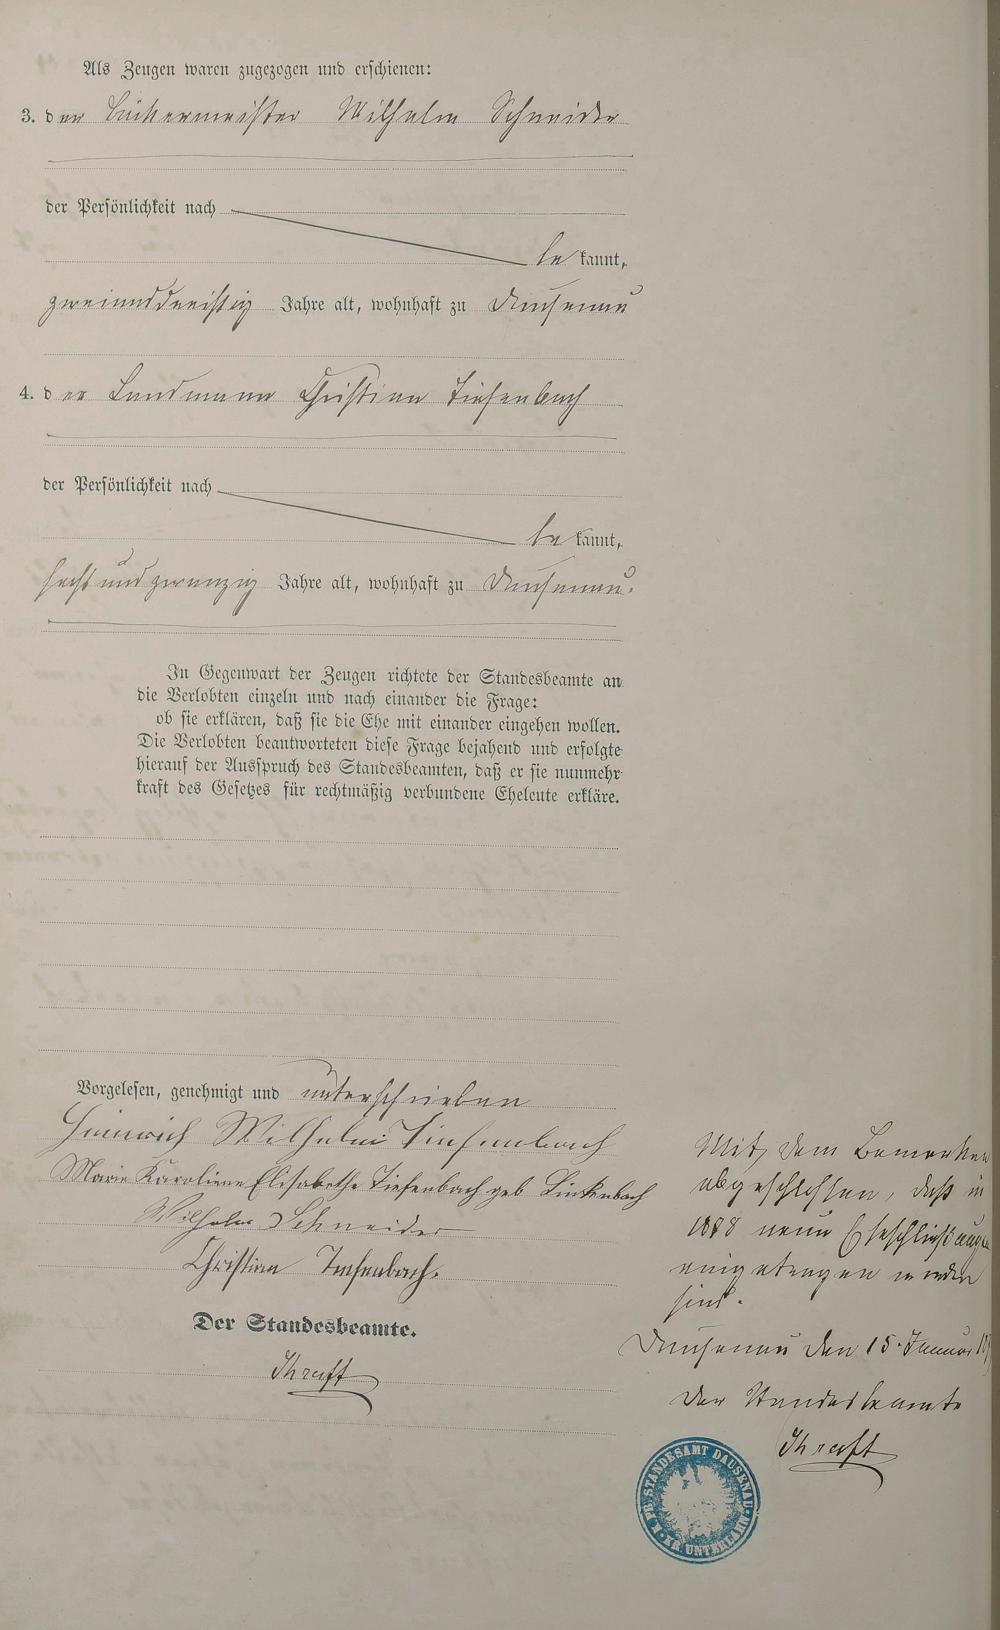 Als Zeugen waren zugezogen und erschienen:
3. der Bäckermeister Wilhelm Schneider
der Persönlichkeit nach
bekannt,
zweiunddreißig Jahre alt, wohnhaft zu Dausenau
4. der Landmann Christian Tiefenbach
der Persönlichkeit nach
bekannt,
sechsundzwanzig Jahre alt, wohnhaft zu Dausenau.
In Gegenwart der Zeugen richtete der Standesbeamte an
die Verlobten einzeln und nach einander die Frage:
ob sie erklären, daß sie die Ehe mit einander eingehen wollen.
Die Verlobten beantworteten diese Frage bejahend und erfolgte
hierauf der Ausspruch des Standesbeamten, daß er sie nunmehr
kraft des Gesetzes für rechtmäßig verbundene Eheleute erkläre.
Vorgelesen, genehmigt und unterschrieben
Heinrich Wilhelm Tiefenbach
Marie Karoline Elisabethe Tiefenbach geb Linkenbach
Wilhelm Schneider
Christian Tiefenbach.
Der Standesbeamte.
Mit dem Bemerken
abgeschlossen, daß in
1878 neun Eheschließungen
eingetragen worden
sind.
Dausenau den 15. Januar
Der Standesbeamte
STANDESAMT DAUSENAU
KR. UNTERLAHN